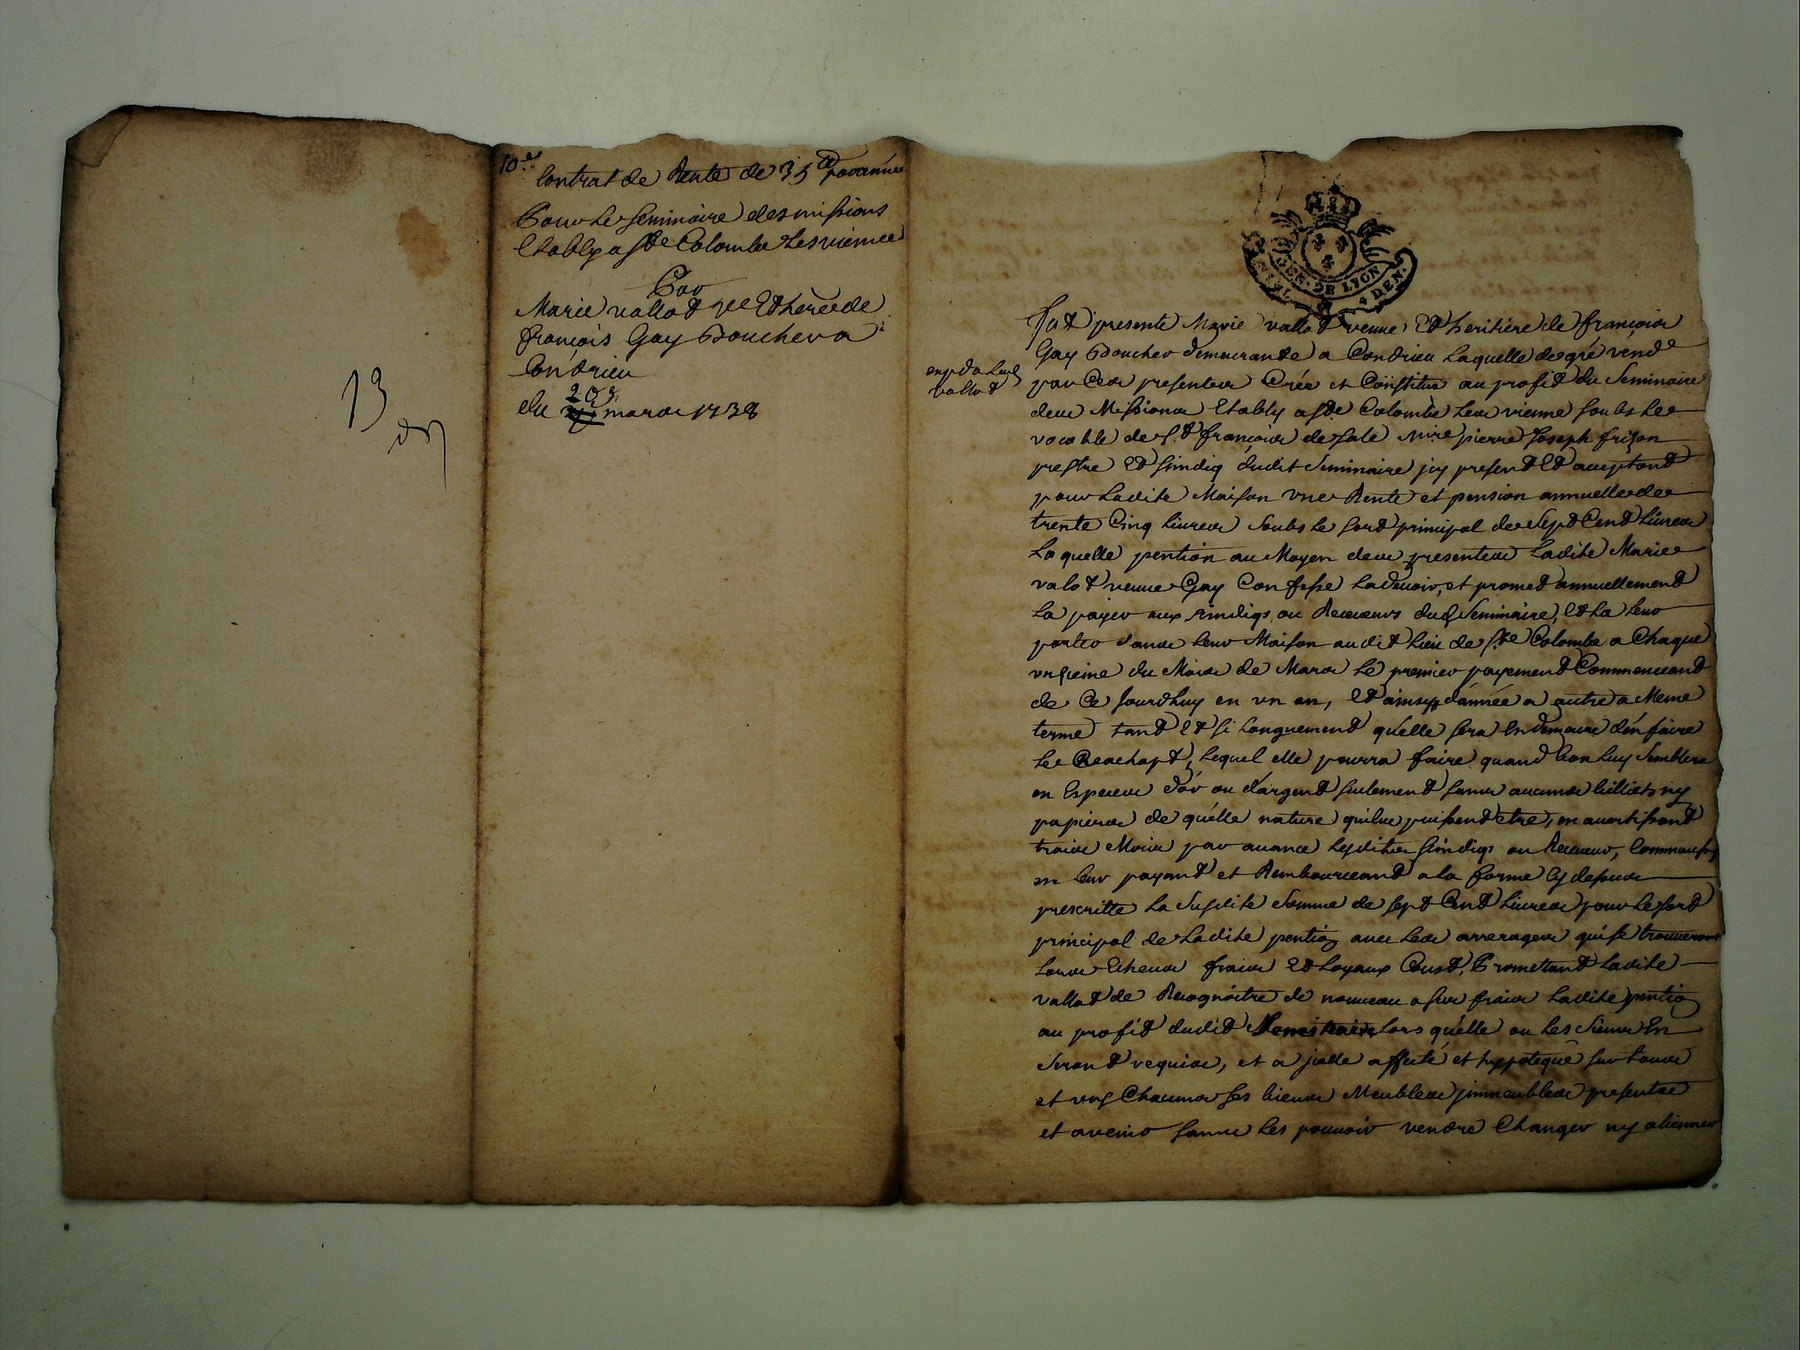 13
10.e
Contrat de Rente de 35 ll par année
Pour Le Seminaire des missions
Etably a Ste Colombe Les vienne
Par
Marie vallot ve Et here de
françois Gay Boucher a
Condrieu
du 20e mars 1738
GEN. DE LYON
4 DEN.
fut presente Marie vallot veuve Et heritiere de françois
Gay Boucher demeurante a Condrieu Laquelle de gré vend
par Ces presentes Crée et Constitue au profit du Seminaire
des Missions Etably a Ste Colombe Les vienne soubs Le
vocable de St françois de sale Mire pierre Joseph frizon
prestre Et sindiq dudit Seminaire icy present Et acceptant
pour Ladite Maison vne Rente et pension annuelle de
trente Cinq Livres soubs Le sort principal de Sept Cent Livres
Laquelle pention au Moyen des presentes Ladite Marie
valot veuve Gay Confesse La devoir, et promet annuellement
La payer aux sindiqs ou Receveurs dud Seminaire, Et La Leur
porter dans Leur Maison audit Lieu de Ste Colombe a Chaque
vnzieme du Mois de Mars Le premier payement Commenceant
de Ce Jourdhuy en vn an, Et ainsy d'année a autre a Meme
terme tant Et si Longuement qu'elle sera En demeure d'en faire
Le Reachapt, Lequel elle pourra faire quand bon Luy Semblera
en Especes d'or ou d'argent seulement sans aucuns billiets ny
papiers de qu'elle nature quilus puissent etre, en avertissant
trois Mois par avance Lesdites sindiqs ou Receveur, Comme aussy
en Leur payant et Rembourceant a la forme Cy dessus
prescritte La Susdite Somme de sept Cent Livres pour Le sort
principal de Ladite pention avec Les arrerages qui se trouveront
Lors Echeus frais Et Loyaux Coust, Prometant Ladite
vallot de Recognoitre de nouveau a ses frais Ladite pention
au profit dudit Seminaire Lors qu'elle ou Les Siens En
Seront requis, et a jcelle affecté et hypotequé sur tous
et vns Chacuns ses biens Meubles jmmeubles presents
et avenir sans Les pouvoir vendre Changer ny alienner